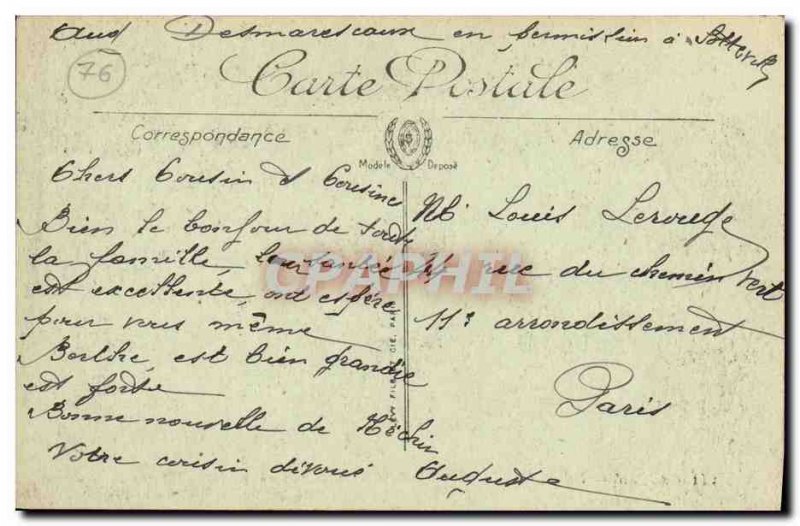 Aug Desmarescaux en permission à Sotteville
76
Carte Postale
Correspondance
Adresse
Modèle Déposé
Chers Cousin et Cousine
Bien le bonjour de toute
la famille,
est excellente, ont espère
pour vous même
Berthe, est bien grandie
est forte
Bonne nouvelle de
Votre cousin dévoué Auguste
Ml. Louis Lerouge
rue du chemin vert
11e arrondissement
Paris
CPAPHIL